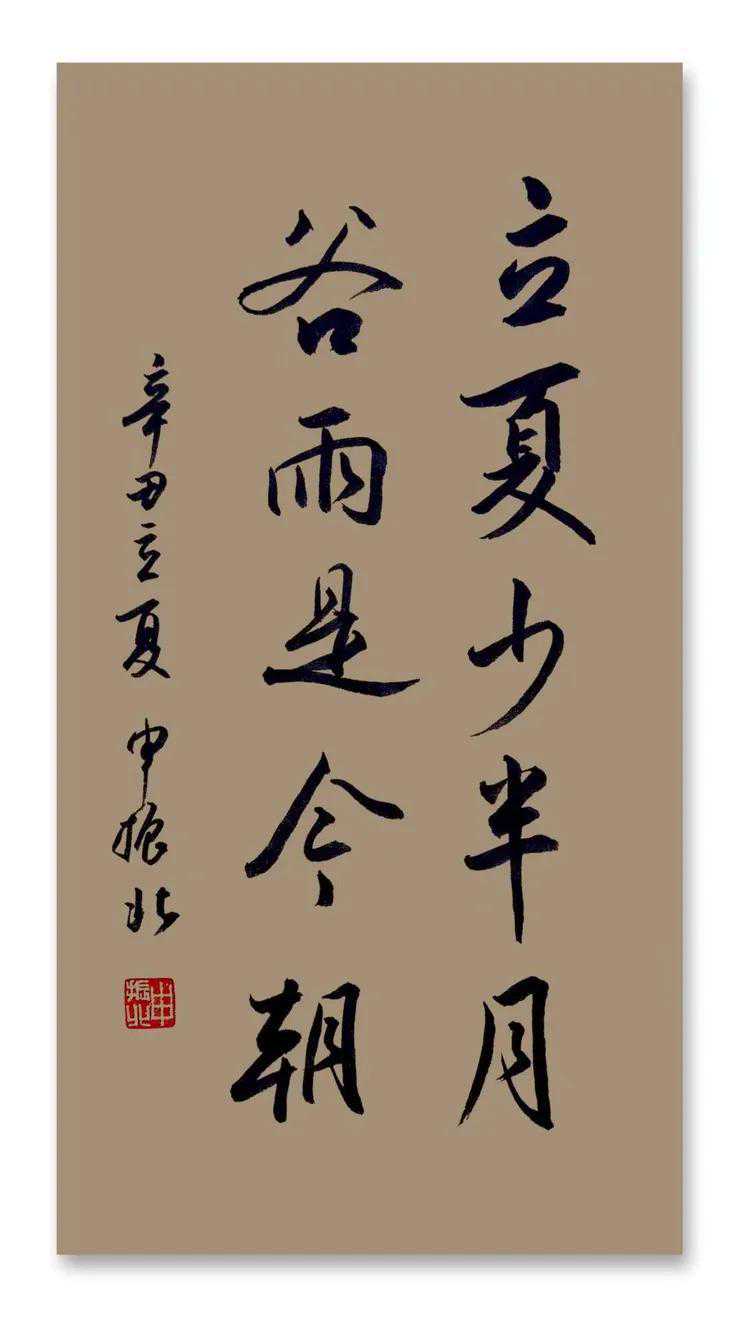 立夏少半月
谷雨是今朝
辛丑立夏 申振北
申振北